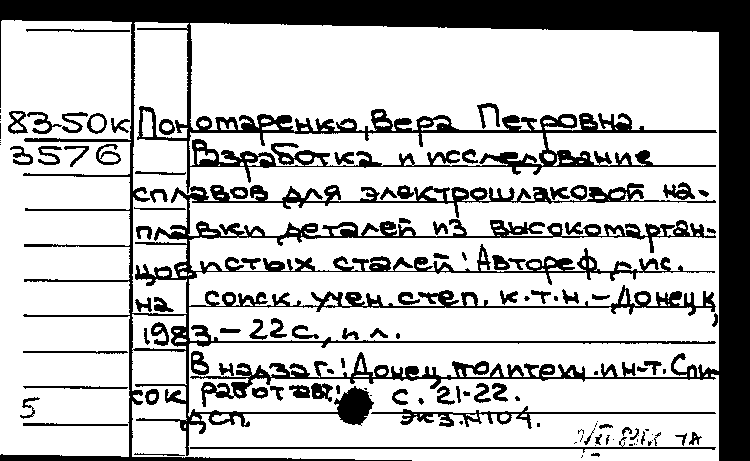 83-50к Пономаренко, Вера Петровна.
3576 Разработка и исследование
сплавов для электрошлаковой на-
плавки деталей из высокомарган-
цовистых сталей: Автореф. дис.
на соиск. учен. степ. к.т.н. - Донецк,
1983. - 22 с., ил.
В надзаг.: Донец. политехн. ин-т. Спи-
сок работ авт.: с. 21-22.
5 ДСП. Экз. N104.